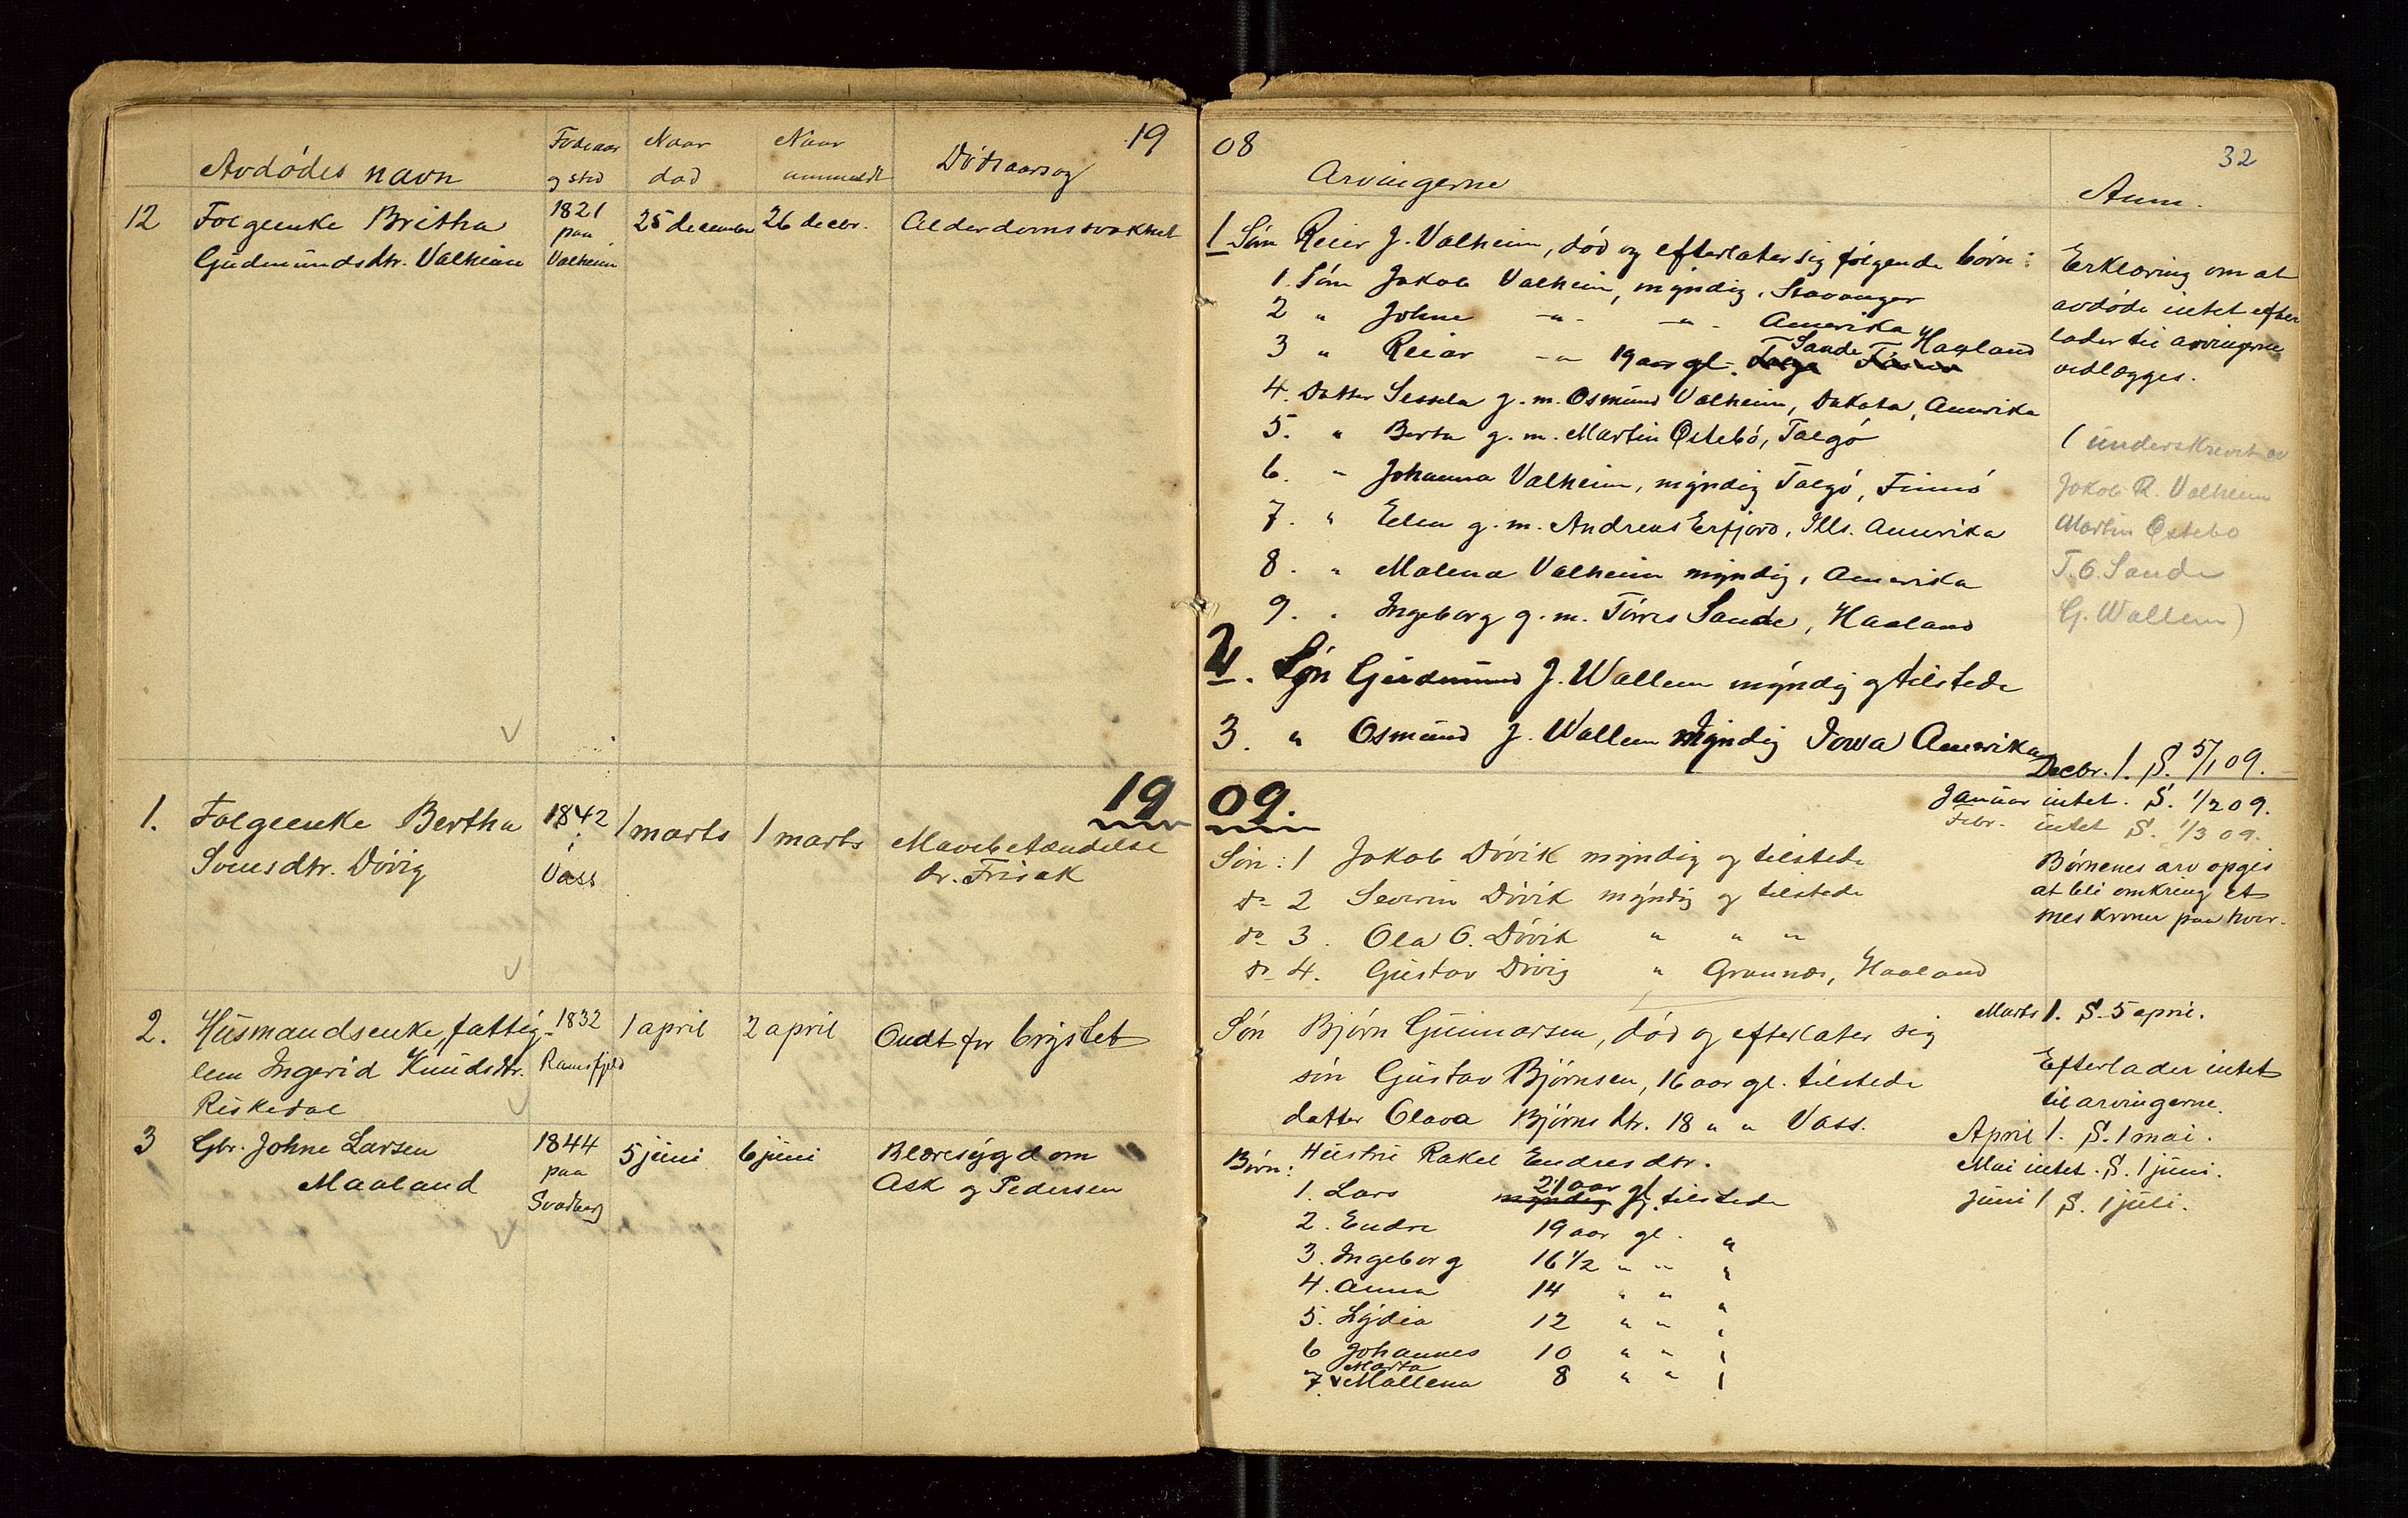 19
Avdødes navn
Fødeaar
og sted
Naar
død
Naar
anmeldt
Dødsaarsag
12 Folgeenke Britha
Gudmundsdtr. Valheim
1821
paa
Valheim
25 december
26 decbr.
Alderdomssvakhet
1. Folgeenke Bertha
Svensdtr. Døvig
1842
i
Vass
1 marts
1 marts
Mavebetændelse
dr. Frisak
19
2. Husmandsenke, fattig-
lem Ingerid Knudsdtr.
Riskedal
1832
Ramsfjeld
1 april
2 april
Ondt for brystet
3 Gbr. Johne Larsen
Maaland
1844
paa
Svadberg
5 juni
6 juni
Blæresygdom
Ask og Pedersen
08
32
Arvingerne
Anm.
1 Søn Reier J. Valheim, død og efterlater sig følgende børn:
1. Søn Jakob Valheim, myndig, Stavanger
2 " Johne -"- -"- Amerika
3 " Reiar -"- 19 aar gl. Sande Haaland
4. Datter Sessela g. m. Osmund Valheim, Dakota, Amerika
5. " Berta g. m. Martin Østebø, Talgø
6. " Johanna Valheim, myndig Talgø, Finnø
7. " Elen g. m. Andreas Erfjord, Ills. Amerika
8. " Malena Valheim myndig, Amerika
9. " Ingeborg g. m. Tørres Sande, Haaland
2. Søn Gudmund J. Wallem myndig og tilstede
3. " Osmund J. Wallem Myndig Iowa Amerika
Erklæring om at
avdøde intet efter
lader til arvingerne
vedlægges.
(underskrevet av
Jakob R. Valheim
Martin Østebø
T. O. Sande
G. Wallem)
Decbr. 1. S. 5/1 09.
09.
Januar intet. S. 1/2 09.
Febr. intet S. 1/3 09.
Søn: 1 Jakob Døvik myndig og tilstede
do 2 Severin Døvik myndig og tilstede
do 3. Ola O. Døvik " " "
do 4. Gustav Døvig " Grannæs, Haaland
Børnenes arv opgis
at bli omkring et
mes kroner paa hver.
Marts 1. S. 5 april.
Søn Bjørn Gunnarsen, død og efterlater sig
søn Gustav Bjørnsen, 16 aar gl. tilstede
datter Olava Bjørnsdtr. 18 " " Vass.
Efterlader intet
til arvingerne.
April 1. S. 1 mai.
Mai intet. S. 1 juni.
Juni 1 S. 1 juli.
Hustru Rakel Endresdtr.
Børn:
1. Lars myndig 21 aar gl. tilstede
2. Endre 19 aar gl. "
3. Ingeborg 16 1/2 " " "
4. Anna 14 " " "
5. Lydia 12 " " "
6 Johannes 10 " " "
Marta
7. Mallena 8 " " "